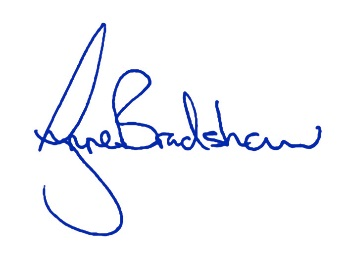 Anne Bradshaw